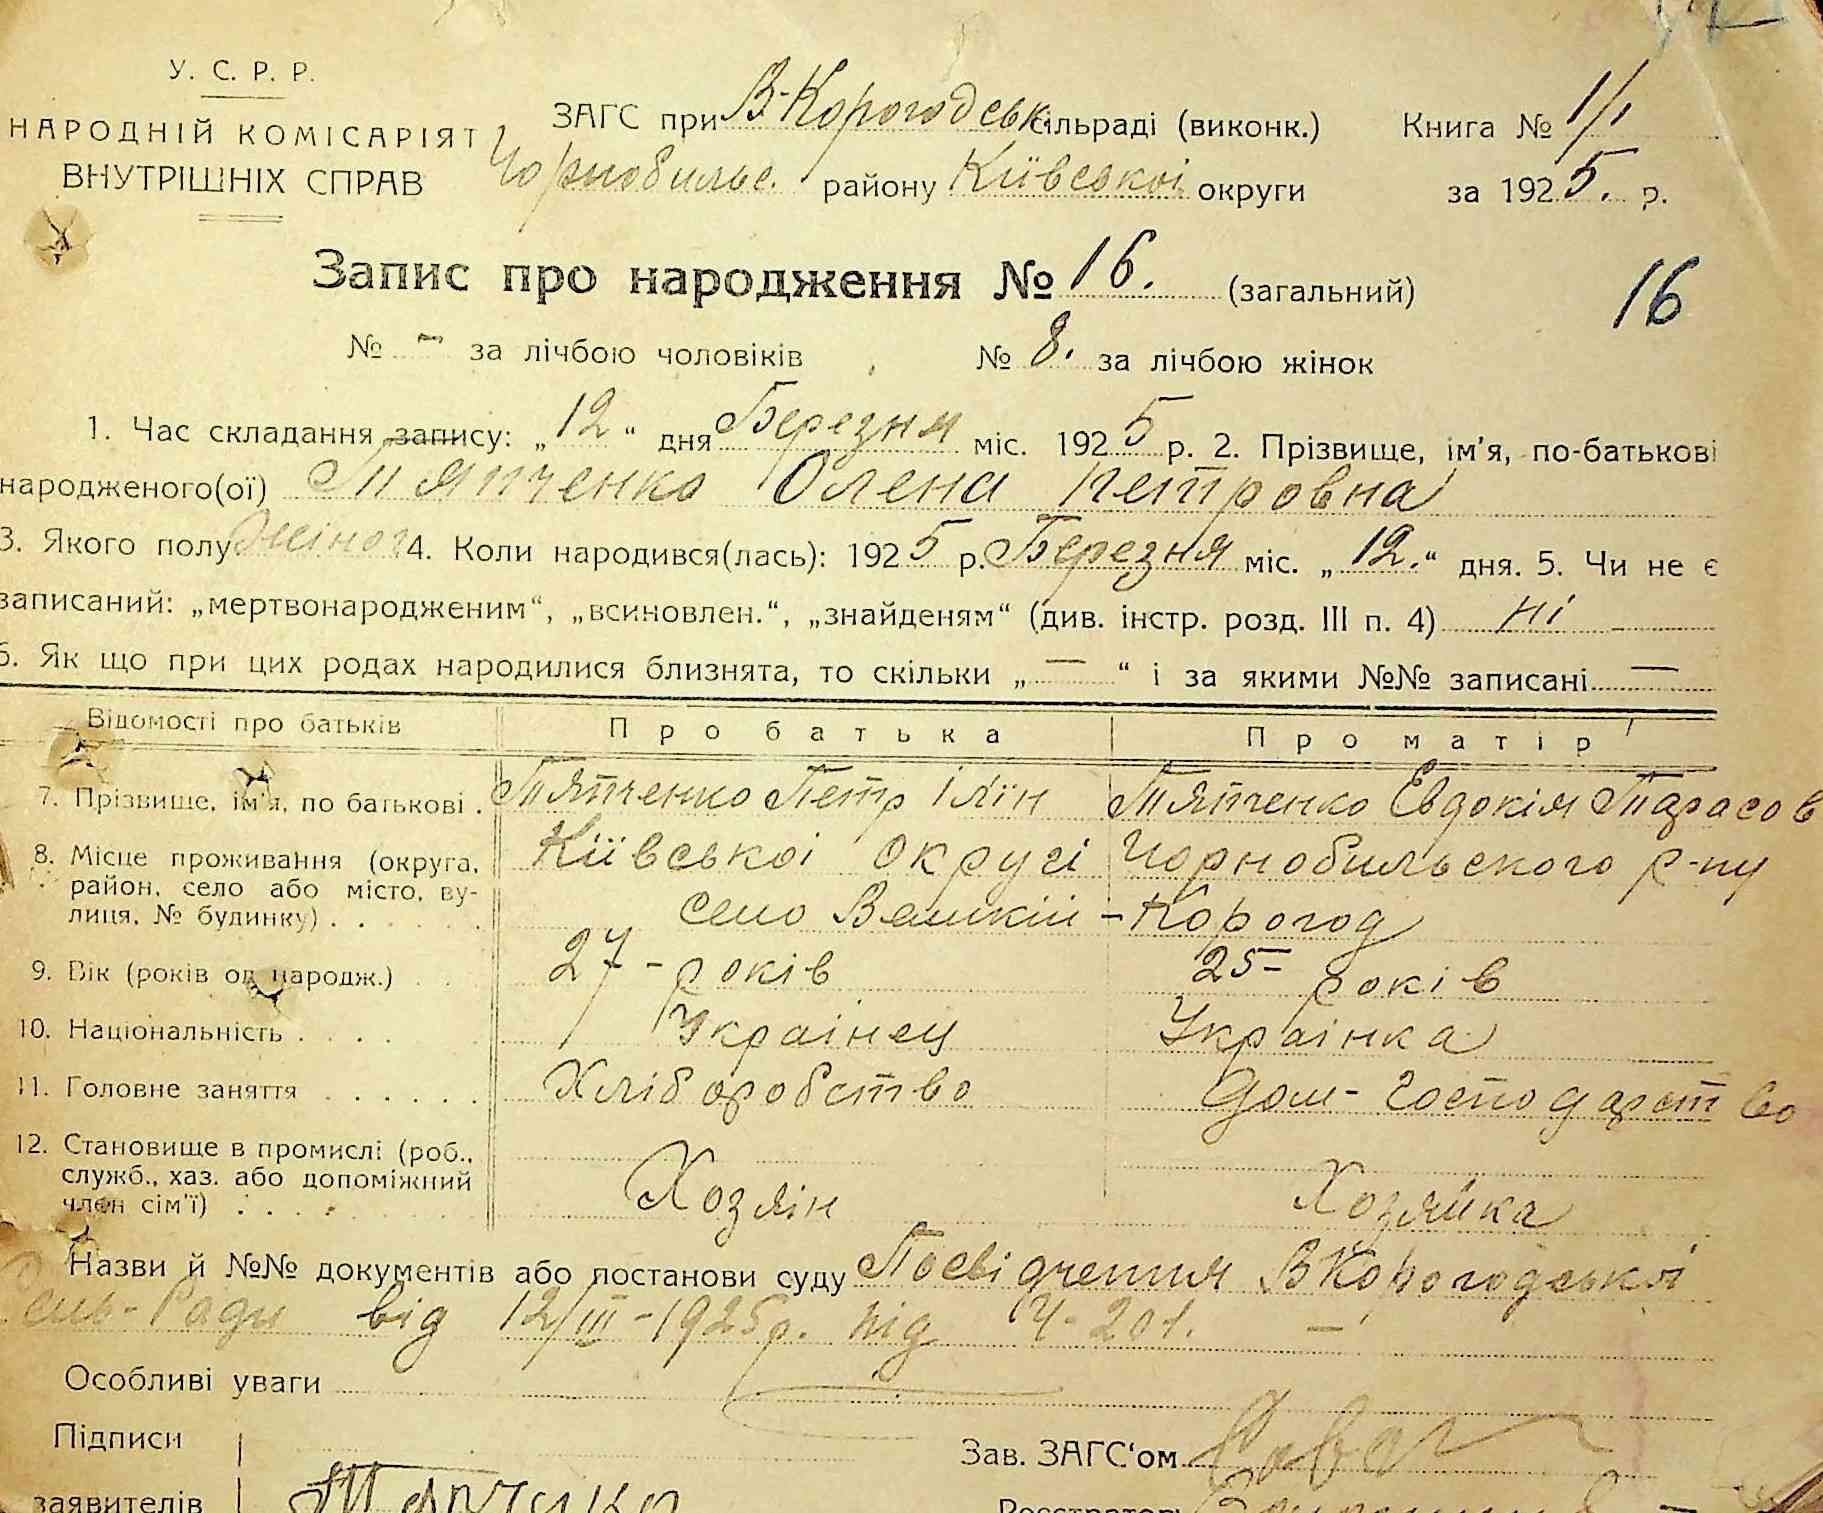 У. С. Р. Р.
НАРОДНІЙ КОМІСАРІЯТ
ВНУТРІШНІХ СПРАВ
ЗАГС при В-Корогодськ. сільраді (виконк.) Книга № 1/1
Чорнобильс. району Київської округи за 1925. р.
Запис про народження № 16. (загальний) 16
№ - за лічбою чоловіків № 8. за лічбою жінок
1. Час складання запису: „12“ дня Березня міс. 1925 р. 2. Прізвище, ім'я, по-батькові
народженого(ої) Тяпченко Олена Петровна
3. Якого полу жіноч 4. Коли народився(лась): 1925 р. Березня міс. „12.“ дня. 5. Чи не є
записаний: „мертвонародженим“, „всиновлен.“, „знайденям“ (див. інстр. розд. III п. 4) ні
6. Як що при цих родах народилися близнята, то скільки „—“ і за якими №№ записані —
Відомості про батьків Про батька Про матір
7. Прізвище, ім'я, по батькові . Тяпченко Петр Ілін Тяпченко Евдокія Тарасов
8. Місце проживання (округа, Київскої округі Чорнобильского р-ну
район, село або місто, ву-
лиця, № будинку) . . . . . . село Великий-Корогод
9. Вік (років од народж.) . . 27-років 25-років
10. Національність . . . . Украінец Украінка
11. Головне заняття . . . . . . Хліборобство Дом-господарство
12. Становище в промислі (роб.,
служб., хаз. або допоміжний Хозяін Хозяйка
член сім'ї) . . . .
Назви й №№ документів або постанови суду Посвідчення ВКорогодської
Сель-Ради від 12/III-1925р. під Ч-201. —
Особливі уваги
Підписи Зав. ЗАГС'ом
заявителів Реєстратор